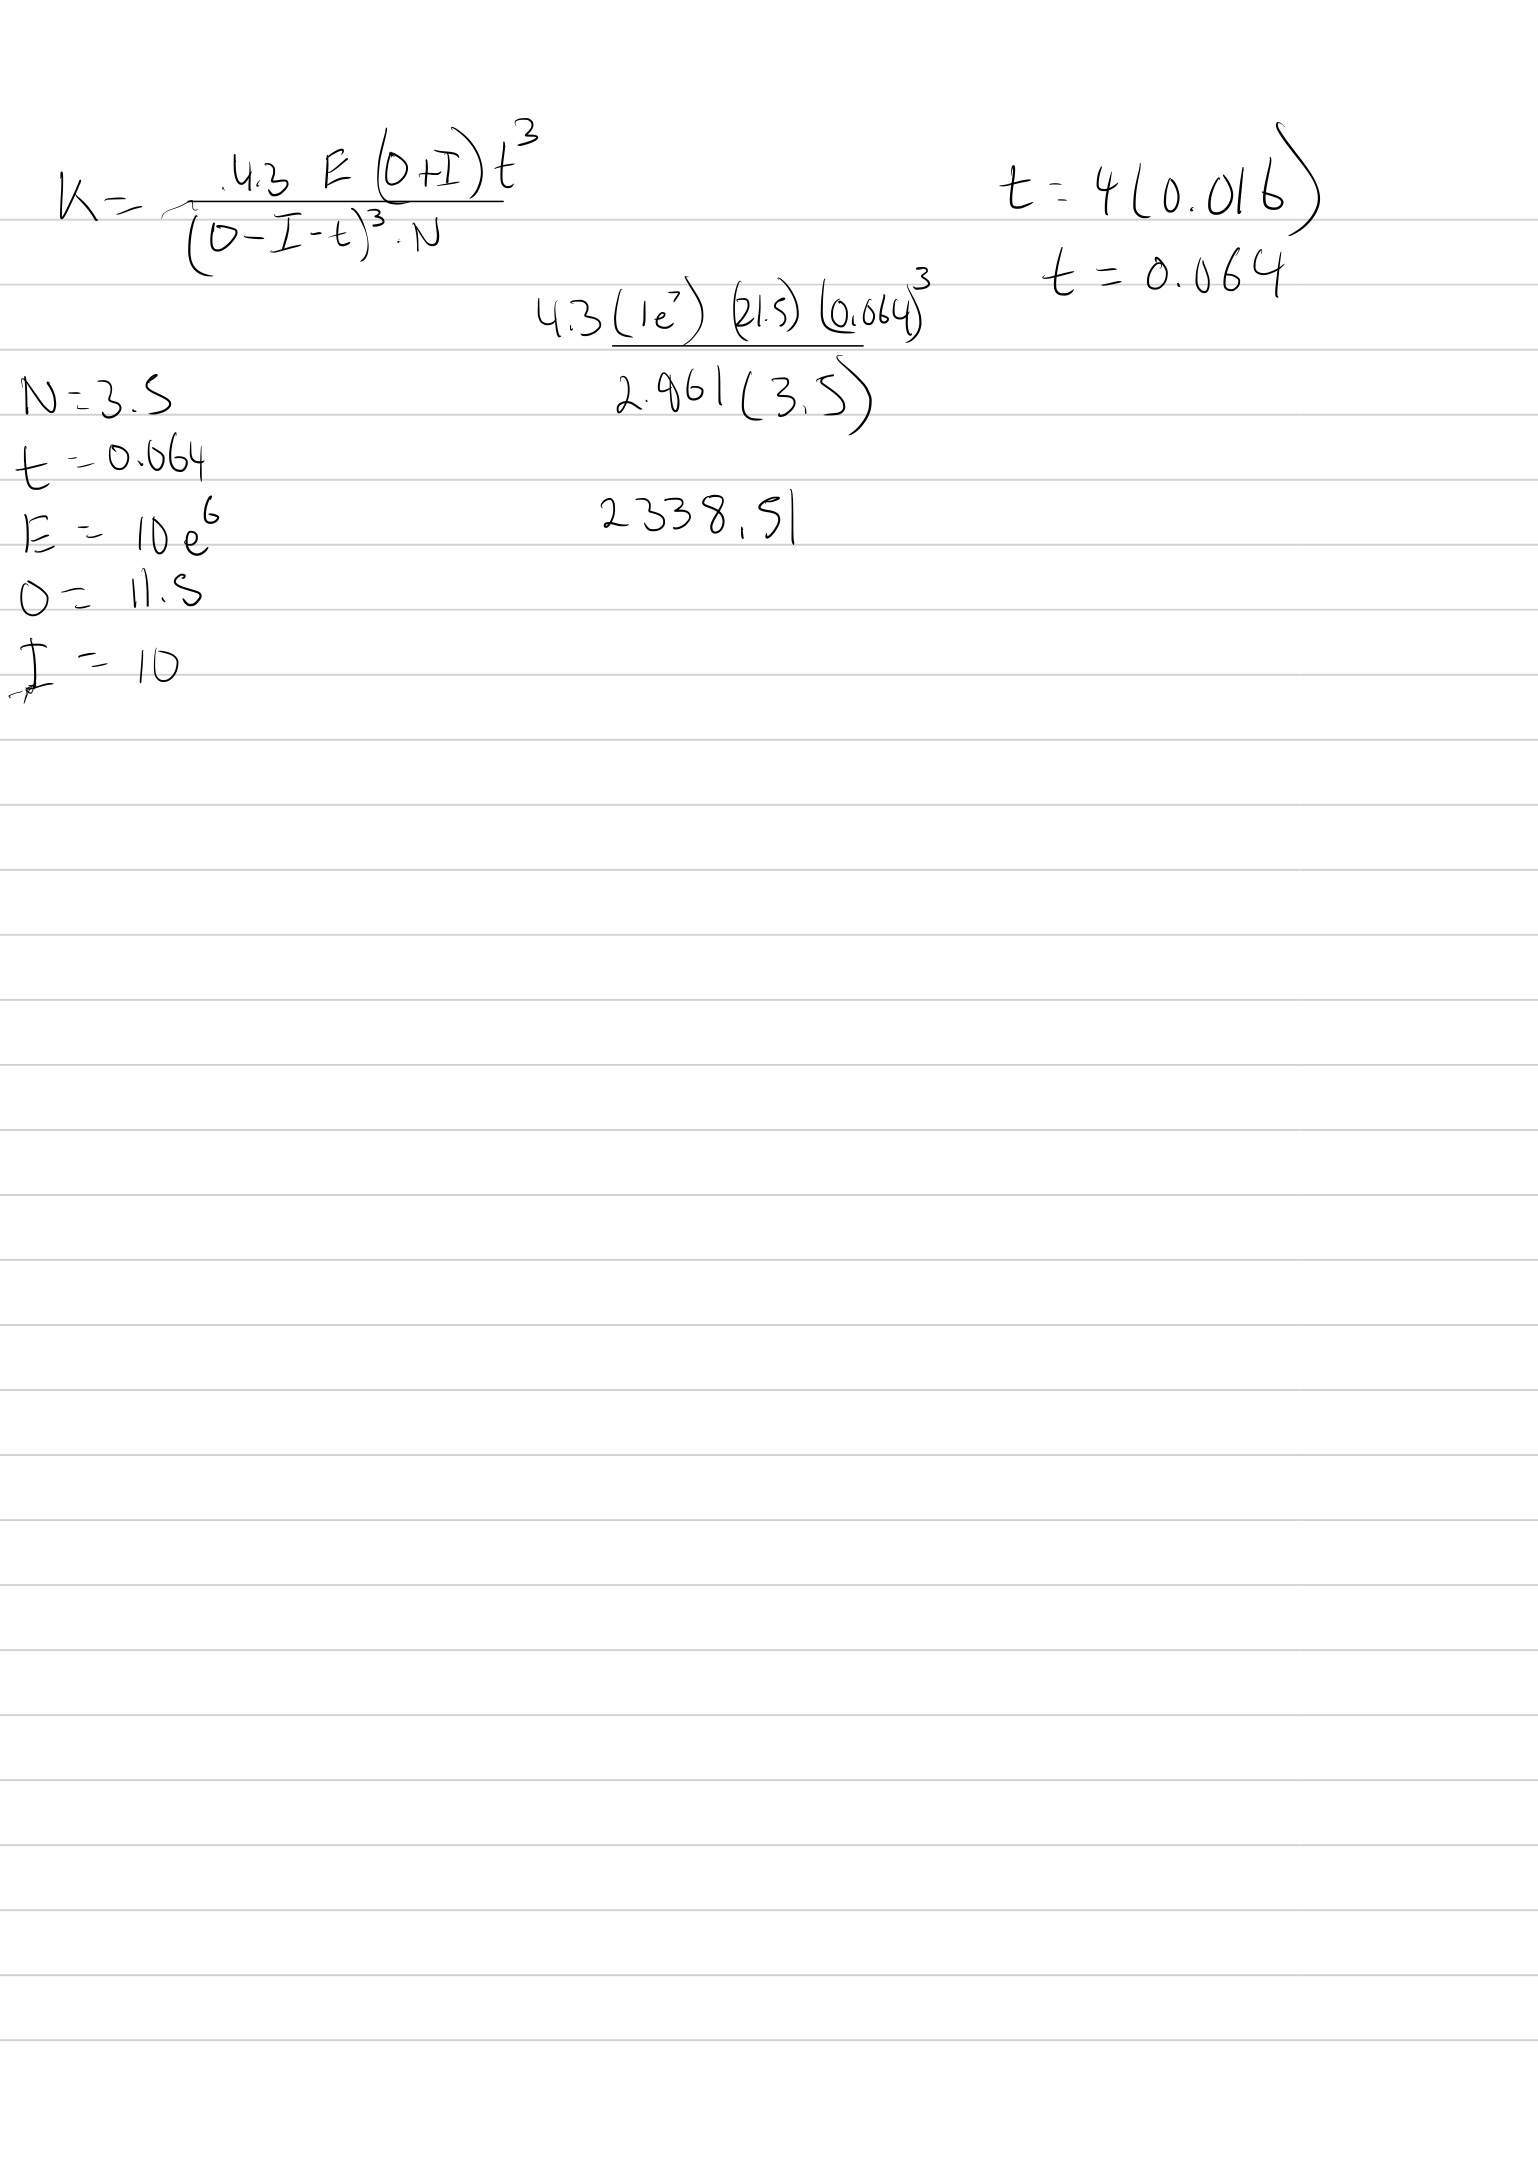 K = 4.3 E (O+I) t³
(O-I-t)³ · N
t = 4(0.016)
t = 0.064
4.3 (1e⁷) (21.5) (0.064)³
2.961 (3.5)
2338.51
N = 3.5
t = 0.064
E = 10e⁶
O = 11.5
I = 10